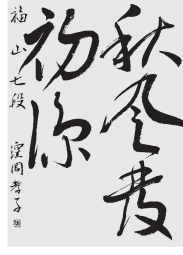 秋風發
初涼
福山七段 窪岡孝子